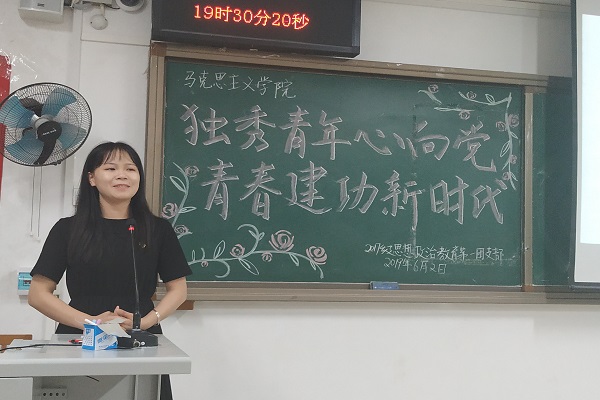 19时30分20秒
马克思主义学院
独秀青年心向党
青春建功新时代
2017级思想政治教育第一团支部
2019年6月2日